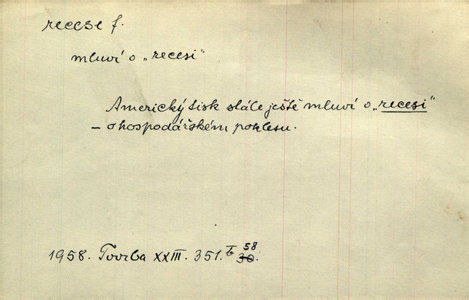 recese f.
mluví o „recesi"
Americký tisk stále ještě mluví o „recesi"
– o hospodářském poklesu.
1958. Tvorba XXIII. 351. b 58
30.